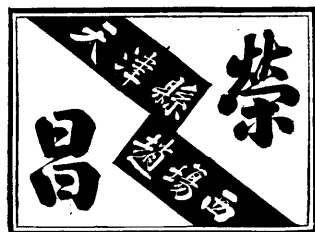 榮昌
天津縣
趙場西